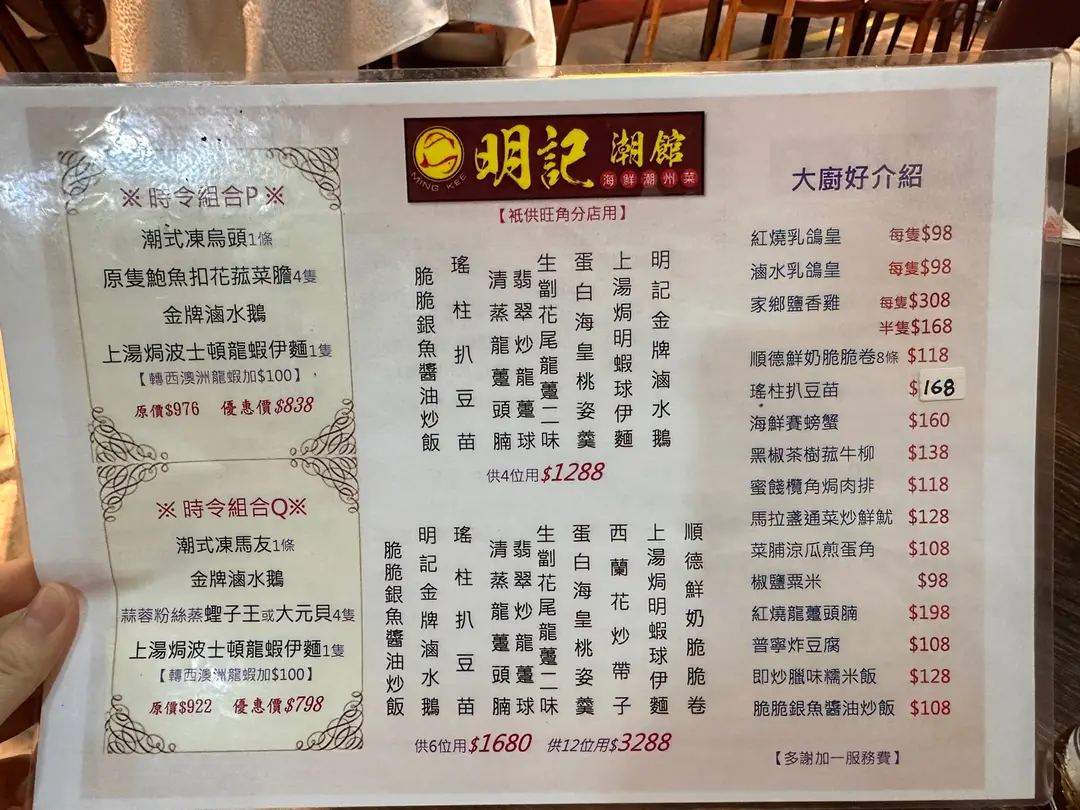 ※時令組合P※
潮式凍烏頭1條
原隻鮑魚扣花菇菜膽4隻
金牌滷水鵝
上湯焗波士頓龍蝦伊麵1隻
【轉西澳洲龍蝦加$100】
原價$976 優惠價$838
※時令組合Q※
潮式凍馬友1條
金牌滷水鵝
蒜蓉粉絲蒸蟶子王或大元貝4隻
上湯焗波士頓龍蝦伊麵1隻
【轉西澳洲龍蝦加$100】
原價$922 優惠價$798
MING KEE
明記潮館
海鮮潮州菜
【祇供旺角分店用】
明記金牌滷水鵝
上湯焗明蝦球伊麵
蛋白海皇桃姿羹
生劏花尾龍躉二味
翡翠炒龍躉球
清蒸龍躉頭腩
瑤柱扒豆苗
脆脆銀魚醬油炒飯
供4位用$1288
順德鮮奶脆脆卷
上湯焗明蝦球伊麵
西蘭花炒帶子
蛋白海皇桃姿羹
生劏花尾龍躉二味
翡翠炒龍躉球
清蒸龍躉頭腩
瑤柱扒豆苗
明記金牌滷水鵝
脆脆銀魚醬油炒飯
供6位用$1680 供12位用$3288
大廚好介紹
紅燒乳鴿皇 每隻$98
滷水乳鴿皇 每隻$98
家鄉鹽香雞 每隻$308
半隻$168
順德鮮奶脆脆卷8條 $118
瑤柱扒豆苗 $168
海鮮賽螃蟹 $160
黑椒茶樹菇牛柳 $138
蜜餞欖角焗肉排 $118
馬拉盞通菜炒鮮魷 $128
菜脯涼瓜煎蛋角 $108
椒鹽粟米 $98
紅燒龍躉頭腩 $198
普寧炸豆腐 $108
即炒臘味糯米飯 $128
脆脆銀魚醬油炒飯 $108
【多謝加一服務費】